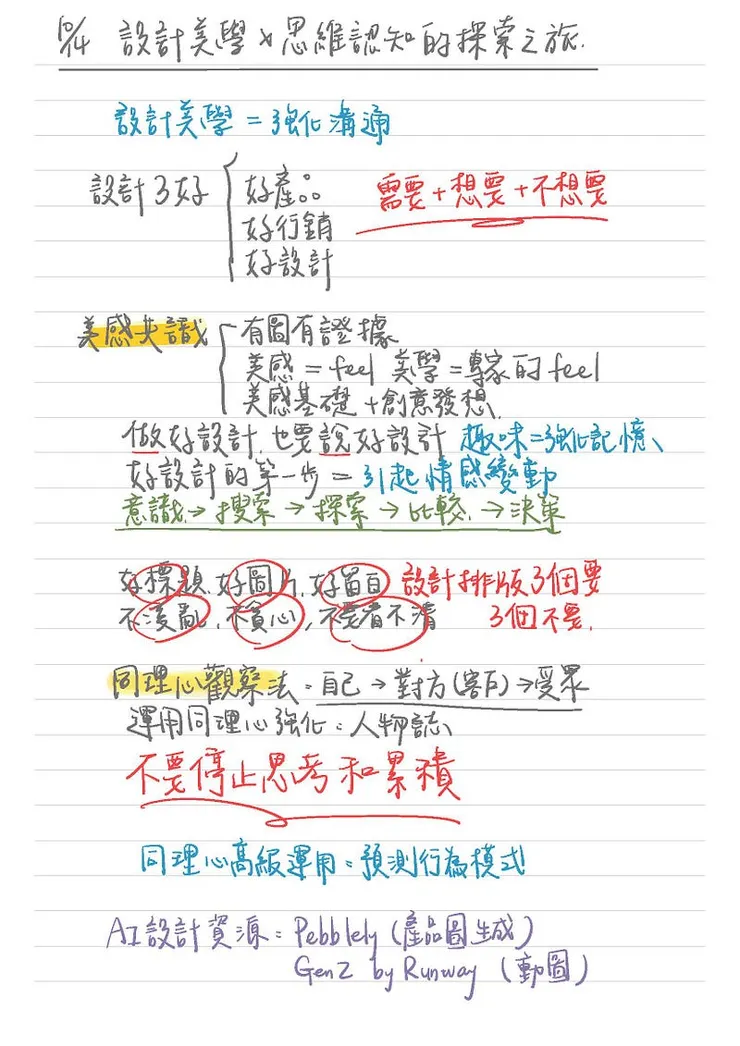 10/4 設計美學 x 思維認知的探索之旅.
設計美學 = 強化溝通
設計3好 好產品 需要+想要+不想要
好行銷
好設計
美感共識 有圖有證據
美感 = feel 美學 = 專家的 feel
美感基礎 + 創意發想.
做好設計, 也要說好設計 趣味=強化記憶、
好設計的第一步 = 引起情感變動
意識 → 搜索 → 探索 → 比較. → 決策
好標題, 好圖片, 好留白 設計排版3個要
不凌亂, 不貪心, 不要看不清 3個不要.
同理心觀察法: 自己 → 對方(客戶) → 受眾
運用同理心強化: 人物誌、
不要停止思考和累積
同理心高級運用: 預測行為模式
AI設計資源: Pebblely (產品圖生成)
Gen2 by Runway (動圖)